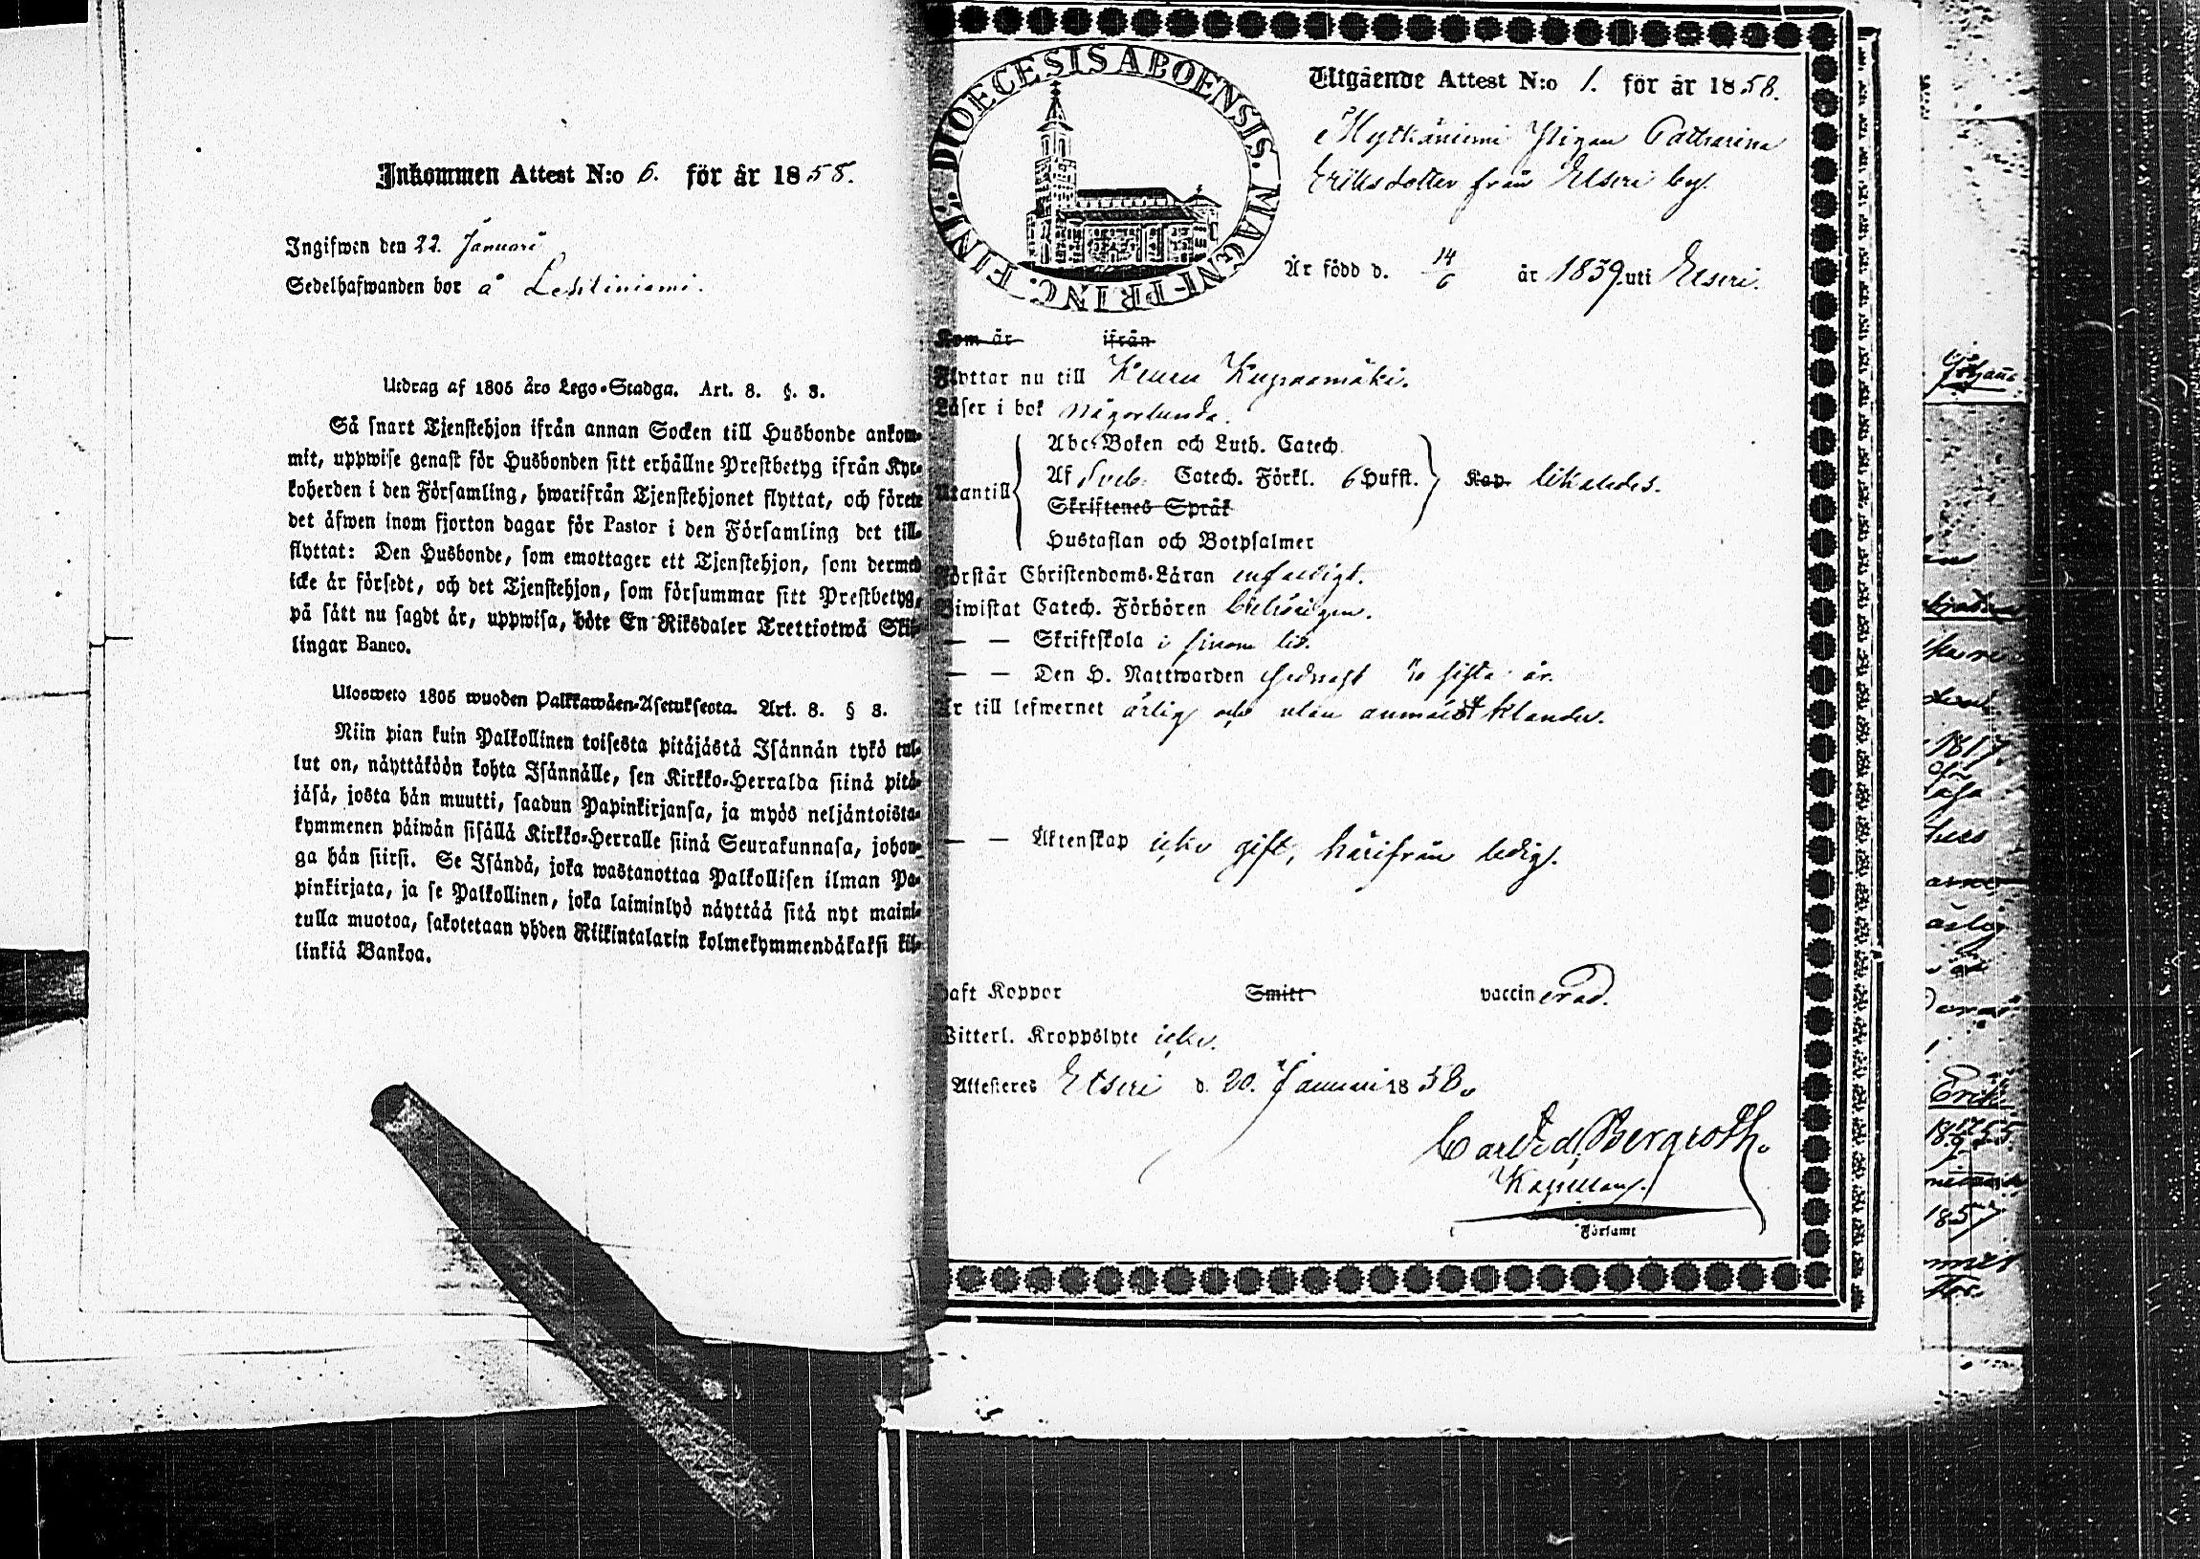 Inkommen Attest N:o 6. för år 1858.
Ingifwen den 22. Januari
Sedelhafwanden bor å
Utdrag af 1805 års Lego-Stadga. Art. 8. §. 3.
Så snart Tjenstehjon ifrån annan Socken till Husbonde ankom-
mit, uppwise genast för Husbonden sitt erhållne Prestbetyg ifrån Kyr-
koherden i den Församling, hwarifrån Tjenstehjonet flyttat, och förete
det äfwen inom fjorton dagar för Pastor i den Församling det till-
flyttat: Den Husbonde, som emottager ett Tjenstehjon, som dermed
icke är försedt, och det Tjenstehjon, som försummar sitt Prestbetyg,
på sätt nu sagdt är, uppwisa, böte En Riksdaler Trettiotwå Skil-
lingar Banco.
Ulosweto 1805 wuoden Palkkawäen-Asetuksesta. Art. 8. § 3.
Niin pian kuin Palkollinen toisesta pitäjästä Isännän tykö tul-
lut on, näyttäköön kohta Isännälle, sen Kirkko-Herralda siinä pitä-
jäsä, josta hän muutti, saadun Papinkirjansa, ja myös neljäntoista-
kymmenen päiwän sisällä Kirkko-Herralle siinä Seurakunnasa, johon-
ga hän siirsi. Se Isändä, joka wastanottaa Palkollisen ilman Pa-
pinkirjata, ja se Palkollinen, joka laiminlyö näyttää sitä nyt maini-
tulla muotoa, sakotetaan yhden Riikintalarin kolmekymmendäkaksi kil-
linkiä Bankoa.
DIOECESIS ABOENSIS. MAGNI PRINC. FINL.
Utgående Attest N:o 1. för år 1858.
Mytkäniemi Pigan Catharina
Eriksdotter från Etseri by.
Är född d. 14/6 år 1839. uti Etseri.
Kom år ifrån
Flyttar nu till Keuru
Läser i bok någorlunda.
Abc-Boken och Luth. Catech.
Utantill Af Sveb. Catech. Förkl. 6 Hufst. Kap. likaledes.
Skriftenes Språk
Hustaflan och Botpsalmer
Förstår Christendoms-Läran enfaldigt.
Biwistat Catech. Förhören behörigen.
— — Skriftskola i sinom tid.
— — Den H. Nattwarden sista år.
Är till lefwernet ärlig och utan anmärkt klander.
— — Äktenskap icke gift, härifrån ledig.
Haft Koppor Smitt vaccinerad.
Witterl. Kroppslyte icke.
Attesteras Etseri d. 20. Januari 1858.
Carl Fred. Bergroth.
Kapellan.
Församl